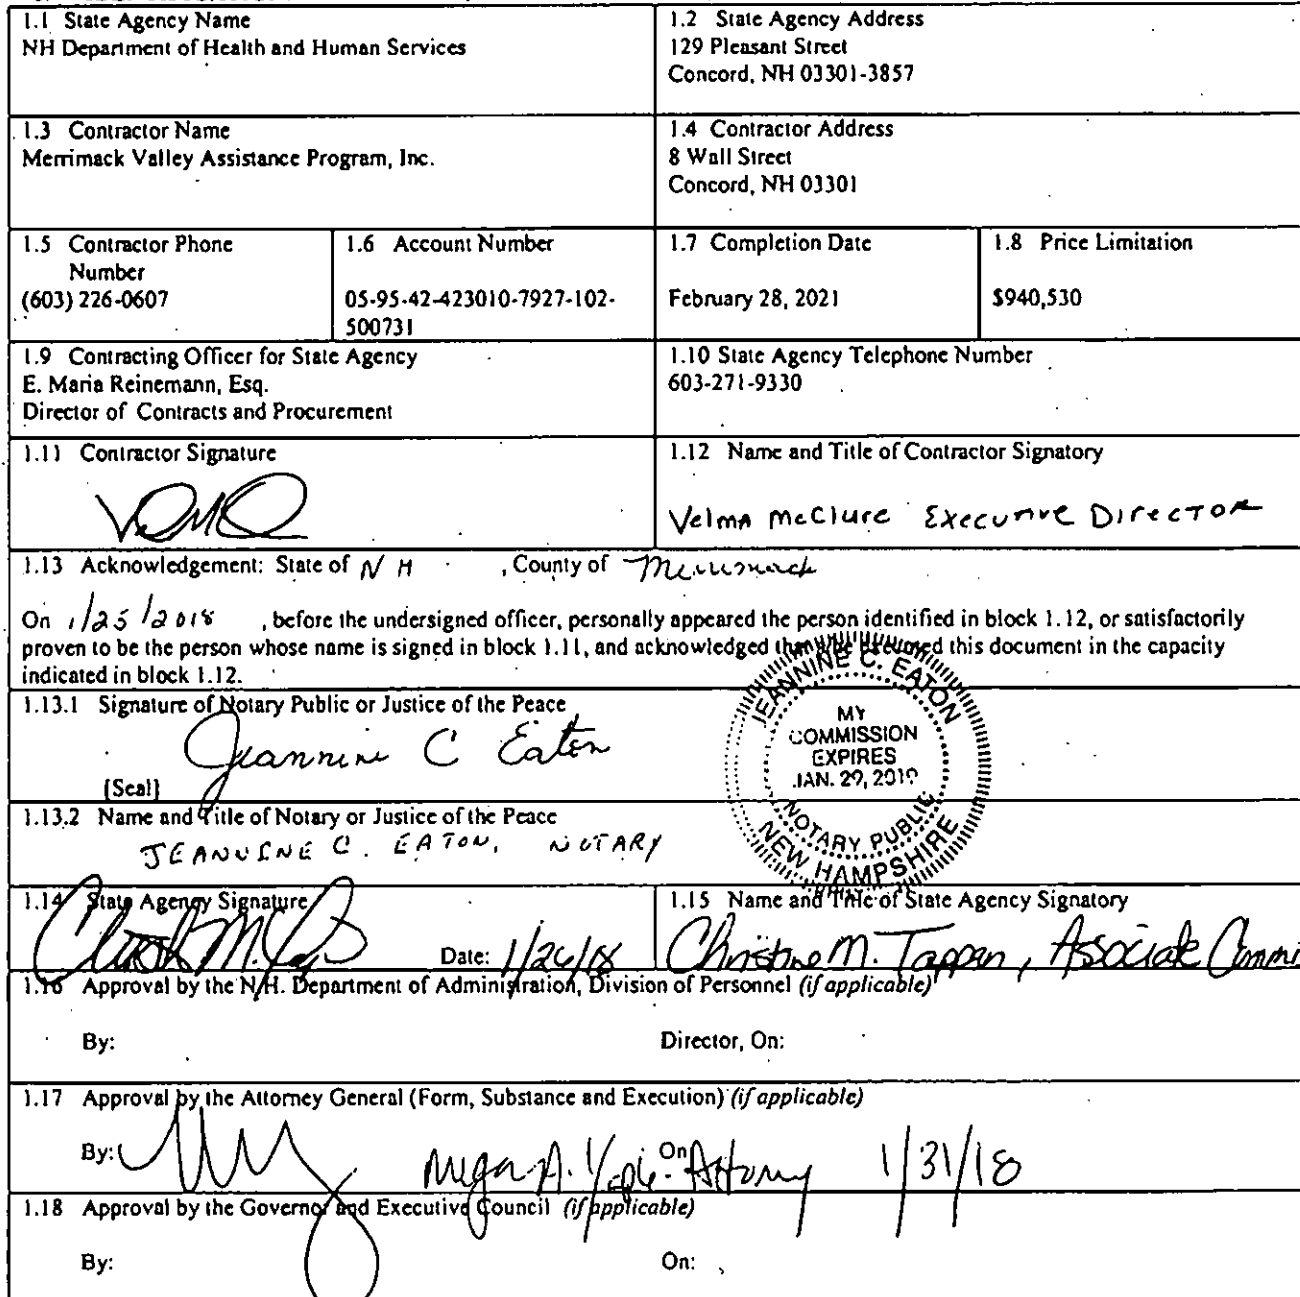 1.1 State Agency Name
NH Department of Health and Human Services
1.2 State Agency Address
129 Pleasant Street
Concord, NH 03301-3857
1.3 Contractor Name
Merrimack Valley Assistance Program, Inc.
1.4 Contractor Address
8 Wall Street
Concord, NH 03301
1.5 Contractor Phone
Number
(603) 226-0607
1.6 Account Number
05-95-42-423010-7927-102-
500731
1.7 Completion Date
February 28, 2021
1.8 Price Limitation
$940,530
1.9 Contracting Officer for State Agency
E. Maria Reinemann, Esq.
Director of Contracts and Procurement
1.10 State Agency Telephone Number
603-271-9330
1.11 Contractor Signature
1.12 Name and Title of Contractor Signatory
Velma McClure Executive Director
1.13 Acknowledgement: State of NH , County of Merrimack
On 1/25/2018 , before the undersigned officer, personally appeared the person identified in block 1.12, or satisfactorily
proven to be the person whose name is signed in block 1.11, and acknowledged that s/he executed this document in the capacity
indicated in block 1.12.
1.13.1 Signature of Notary Public or Justice of the Peace
Jeannine C Eaton
[Seal]
JEANNINE C. EATON
MY
COMMISSION
EXPIRES
JAN. 29, 2019
NOTARY PUBLIC
NEW HAMPSHIRE
1.13.2 Name and Title of Notary or Justice of the Peace
JEANNINE C. EATON, NOTARY
1.14 State Agency Signature
Date: 1/26/18
1.15 Name and Title of State Agency Signatory
Christine M. Tappan, Associate Commi
1.16 Approval by the N.H. Department of Administration, Division of Personnel (if applicable)
By: Director, On:
1.17 Approval by the Attorney General (Form, Substance and Execution) (if applicable)
By: Megan A. Yaple - Attorney On: 1/31/18
1.18 Approval by the Governor and Executive Council (if applicable)
By: On: